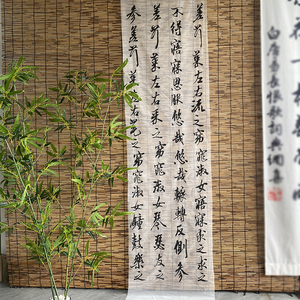 差荇菜左右流之窈窕淑女寤寐求之求之
不得寤寐思服悠哉悠哉輾轉反側參
差荇菜左右采之窈窕淑女琴瑟友之
參差荇菜左右芼之窈窕淑女鐘鼓樂之
白居易長恨歌詞